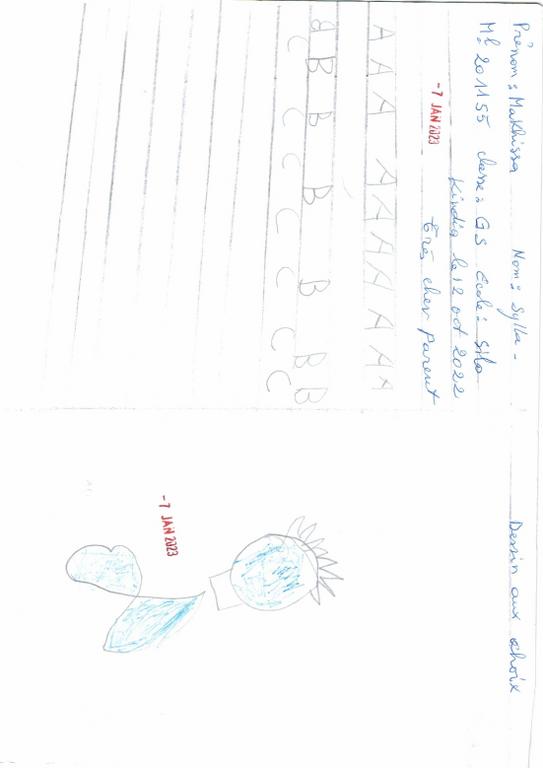 Prénom : Makhissa Nom : Sylla -
Mle: 201155 classe : GS Ecole : Silo
Kindia le 12 oct 2022
- 7 JAN 2023 très cher parent
A A A A A A A A A
B B B B B B B
C C C C C C C
Dessin aux choix
- 7 JAN 2023